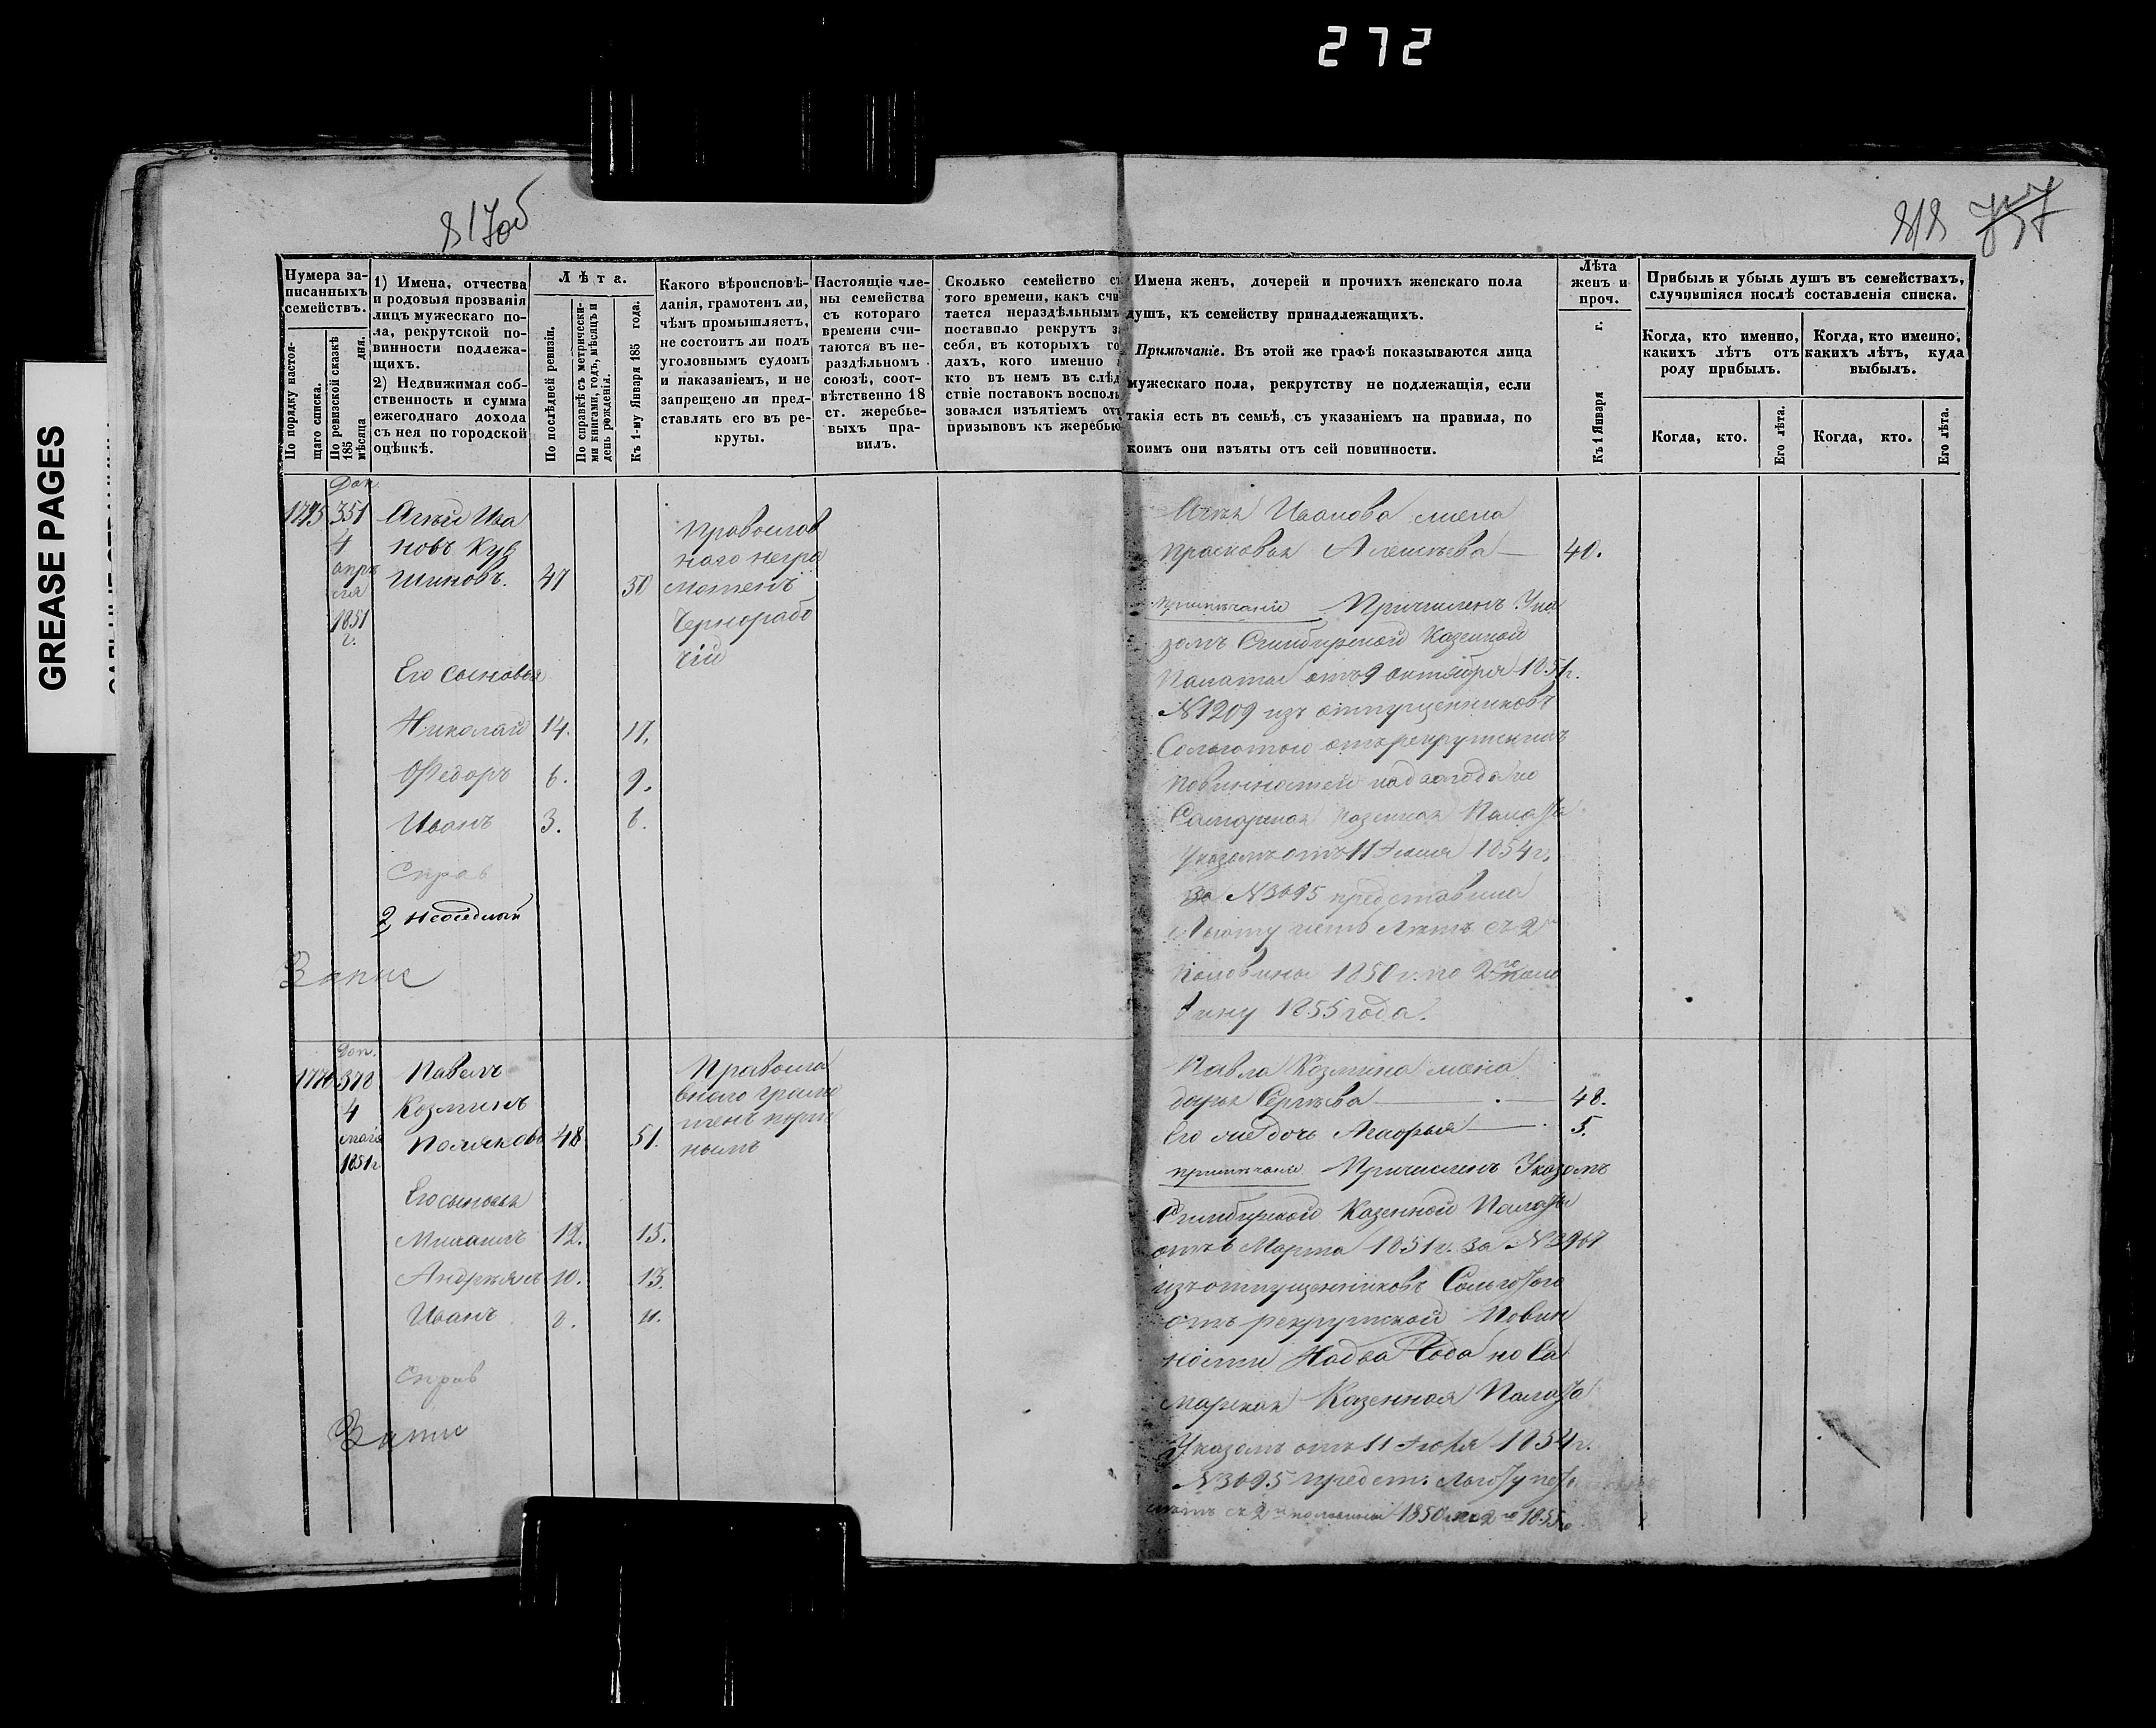 272
GREASE PAGES
817об
818
Нумера за-
писанныхъ
семействъ.
По порядку настоя-
щаго списка.
По ревизской сказкѣ
185 дня.
мѣсяца
1) Имена, отчества
и родовыя прозванія
лицъ мужескаго по-
ла, рекрутской по-
винности подлежа-
щихъ.
2) Недвижимая соб-
ственность и сумма
ежегоднаго дохода
съ нея по городской
оцѣнкѣ.
Лѣта.
По послѣдней ревизіи.
По справкѣ съ метрически-
ми книгами, годъ, мѣсяцъ и
день рожденія.
Къ 1-му Января 185 года.
Какого вѣроисповѣ-
данія, грамотенъ ли,
чѣмъ промышляетъ,
не состоитъ ли подъ
уголовнымъ судомъ
и наказаніемъ, и не
запрещено ли пред-
ставлять его въ ре-
круты.
Настоящіе чле-
ны семейства
съ котораго
времени счи-
таются въ не-
раздѣльномъ
союзѣ, соот-
вѣтственно 18
ст. жеребье-
выхъ пра-
вилъ.
Сколько семейство съ
того времени, какъ счи
тается нераздѣльнымъ
поставило рекрутъ за
себя, въ которыхъ го
дахъ, кого именно и
кто въ немъ въ слѣд
ствіе поставокъ восполь
зовался изъятіемъ отъ
призывовъ къ жеребью
Имена женъ, дочерей и прочихъ женскаго пола
душъ, къ семейству принадлежащихъ.
Примѣчаніе. Въ этой же графѣ показываются лица
мужескаго пола, рекрутству не подлежащія, если
такія есть въ семьѣ, съ указаніемъ на правила, по
коимъ они изъяты отъ сей повинности.
Лѣта
женъ и
проч.
Къ 1 Января г.
Прибыль и убыль душъ въ семействахъ,
случившіяся послѣ составленія списка.
Когда, кто именно,
какихъ лѣтъ отъ
роду прибылъ.
Когда, кто именно,
какихъ лѣтъ, куда
выбылъ.
Когда, кто.
Его лѣта.
Когда, кто.
Его лѣта.
Доп.
1775 351 Ива
4 новъ
апрѣ
ля шиновъ. 47 50
1851
г.
Православ
наго негра
мотенъ
Чернорабо
чій
Его сыновья
Николай 14. 17.
Федоръ 6. 9.
Иванъ 3. 6.
Справ
2
Иванова жена
Прасковья Алексѣева 40.
примѣчаніе Причисленъ Ука
зомъ Симбирской Казенной
Палаты отъ 9 октября 1851г.
N 1209 изъ отпущенниковъ
Сольготою отъ рекрутскихъ
повинностей на два года но
Самарская Казенная Палата
Указомъ отъ 11 1854 г.
за N 3095 представила
Льготу лѣтъ съ 2й
половины 1850 г. по 2ю поло
вину 1855 года.
Доп.
1776 378 Павелъ
4 Козминъ
мая Поляковъ 48 51.
1851г
Православ
наго грамо
тенъ порт
нымъ
Его сыновья
Михаилъ 12. 15.
Андреянъ 10. 13.
Иванъ 8. 11.
Справ
Павла Козмина жена
Дарья Сергѣева 48.
Его же дочь 5.
примѣчаніе Причисленъ Указомъ
Симбирской Казенной Палаты
отъ Марта 1851 г. за N
изъ отпущенниковъ Сольготою
отъ рекрутской Повин
ности На два Года но Са
марская Казенная Палата
Указомъ отъ 11 1854 г.
N 3095 предст. Льготу
лѣтъ съ 2й половины 1850 по 2ю 1855 г.